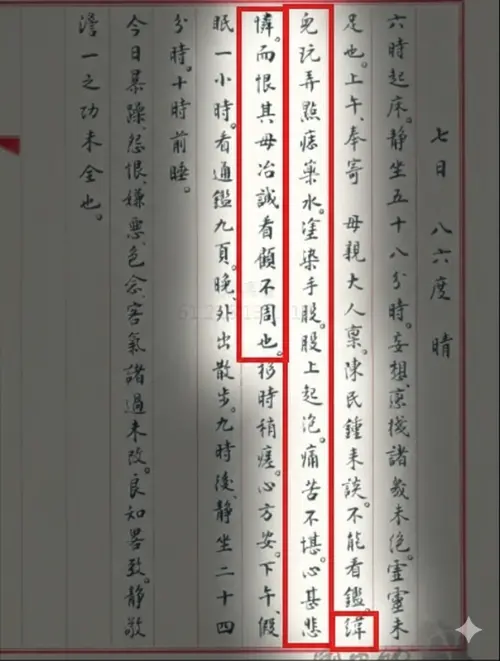 七日 八六度 晴
六時起床。静坐五十八分時。妄想、慾機諸幾未绝。靈靈未
足也。上午、奉寄 母親大人稟。陳民鍾来談。不能看鑑。緯
兒玩弄點痣藥水。塗染手股。股上起泡。痛苦不堪。心甚悲
憐。而恨其母冶誠看顧不周也。移時稍瘥。心方安。下午、假
眠一小時。看通鑑九頁。晚、外出散步。九時後、静坐二十四
分時。十時前睡。
今日暴躁、怨恨、嫌惡、色念、客氣諸過未改。良知畧致。静敬
澹一之功未全也。